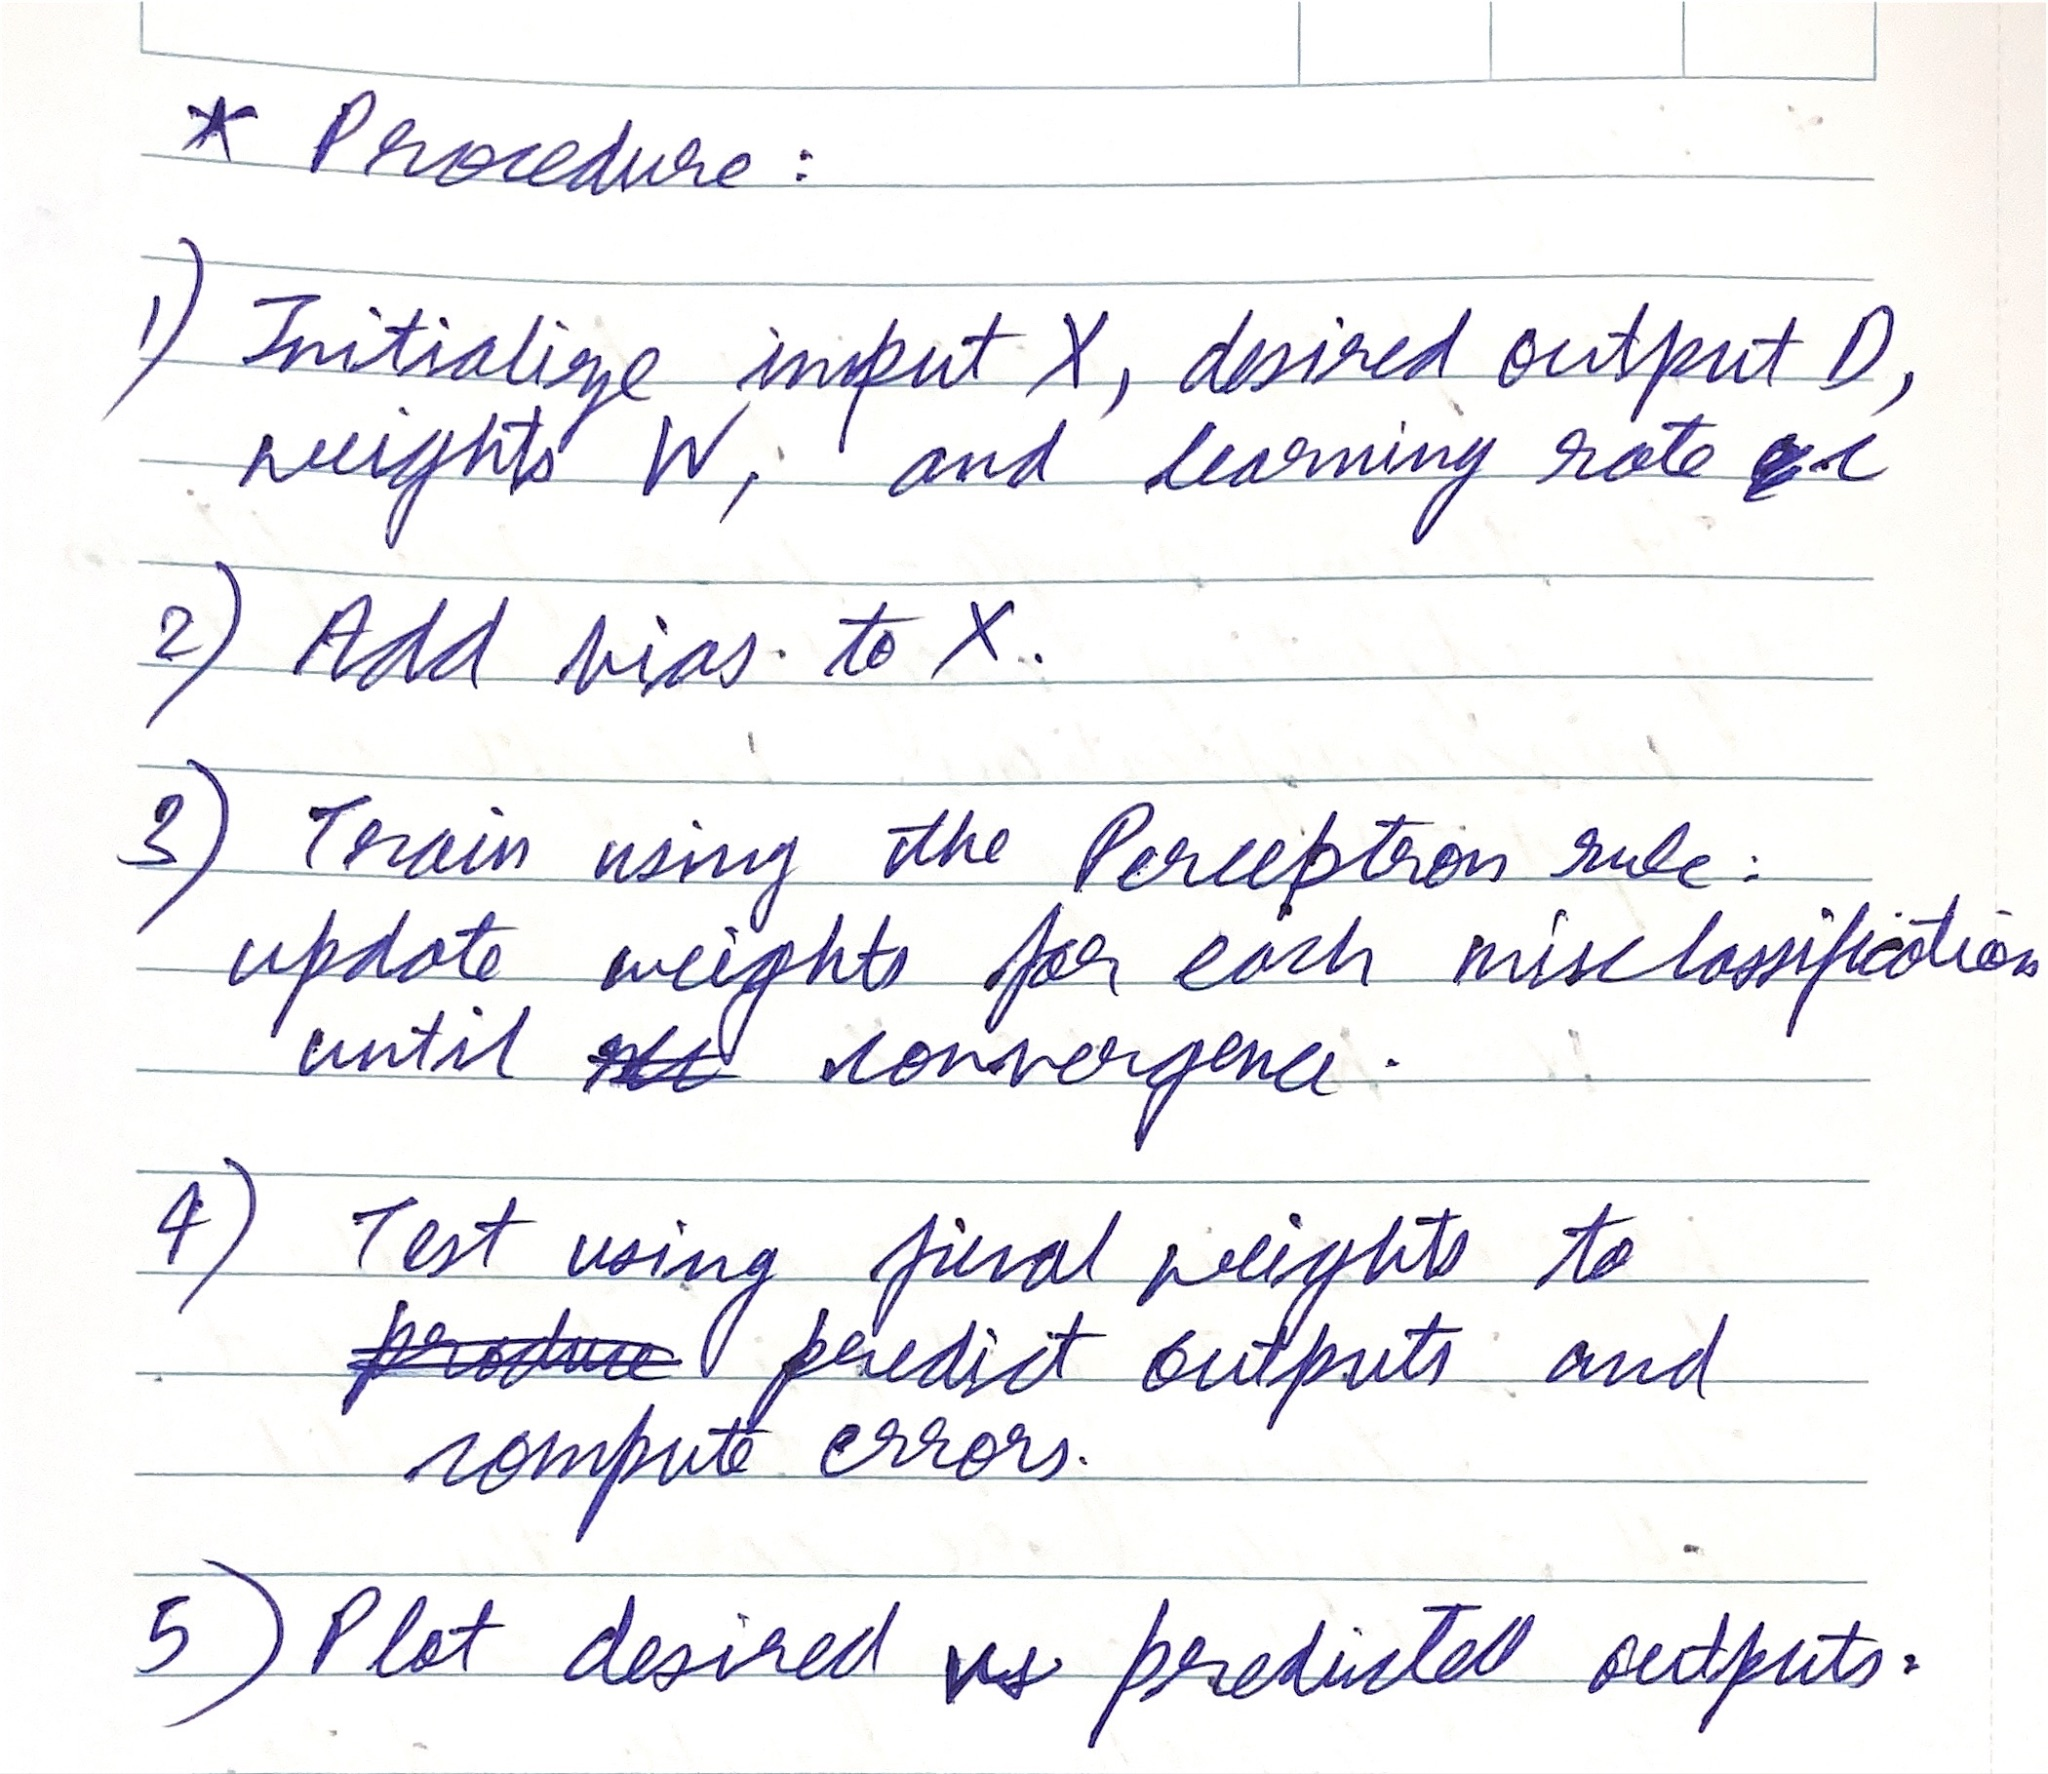 * Procedure:
1) Initialize input X, desired output D,
weights W, and learning rate c
2) Add bias to X.
3) Train using the Perceptron rule:
update weights for each misclassification
until convergence.
4) Test using final weights to
produce predict outputs and
compute errors.
5) Plot desired vs predicted outputs.